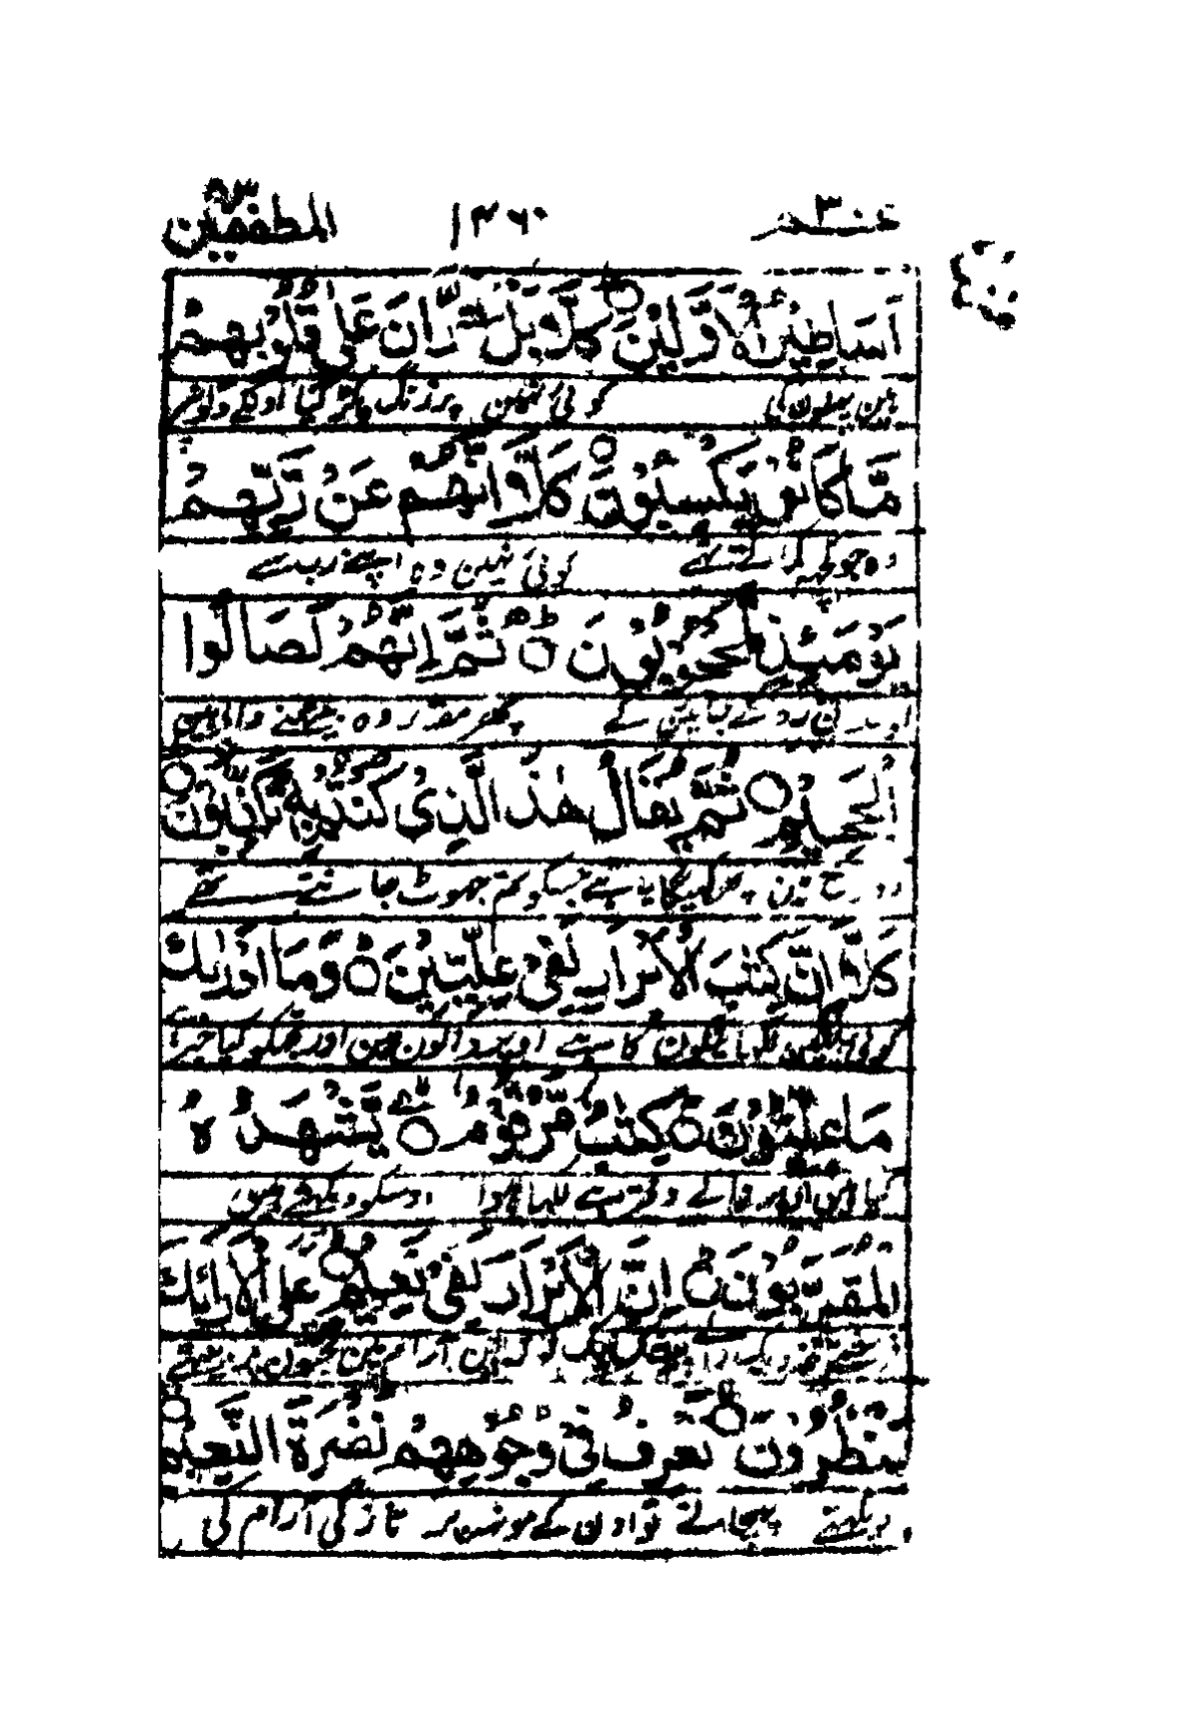 عم ٣٠ ١٤٦٠ المطففين ٨٣
اَسَاطِيْرُ الْاَوَّلِيْنَ ○ كَلَّا بَلْ رَانَ عَلٰى قُلُوْبِهِمْ
ہین پہلون کی کوئی نہین پر زنگ پکڑ گیا اونکے دلون پر
مَّا كَانُوْا يَكْسِبُوْنَ ○ كَلَّا اِنَّهُمْ عَنْ رَّبِّهِمْ
وہ جو کچھ کماتے تھے کوئی نہین وہ اپنے رب سے
يَوْمَئِذٍ لَّمَحْجُوْبُوْنَ ○ ثُمَّ اِنَّهُمْ لَصَالُوا
پھر مقرر وہ بیٹھنے والے ہین
الْجَحِيْمِ ○ ثُمَّ يُقَالُ هٰذَا الَّذِيْ كُنْتُمْ بِهٖ تُكَذِّبُوْنَ ○
دوزخ مین پھر کہیگا یہ ہے جسکو تم جھوٹ جانتے تھے
كَلَّا اِنَّ كِتٰبَ الْاَبْرَارِ لَفِيْ عِلِّيِّيْنَ ○ وَمَا اَدْرٰىكَ
کوئی نہین لکھا نیکون کا ہے اوپر والون مین اور تجکو کیا خبر
مَا عِلِّيُّوْنَ ○ كِتٰبٌ مَّرْقُوْمٌ ○ يَّشْهَدُهُ
کیا ہین اوپر والے دفتر ہے لکھا ہوا اوسکو دیکھتے ہین
الْمُقَرَّبُوْنَ ○ اِنَّ الْاَبْرَارَ لَفِيْ نَعِيْمٍ ○ عَلَى الْاَرَائِكِ
فرشتے نزدیک والے بیشک نیک لوگ ہین آرام مین تختون پر بیٹھے
يَنْظُرُوْنَ ○ تَعْرِفُ فِيْ وُجُوْهِهِمْ نَضْرَةَ النَّعِيْمِ ○
دیکھتے پہچانے تو اون کے مونہہ پر تازگی آرام کی